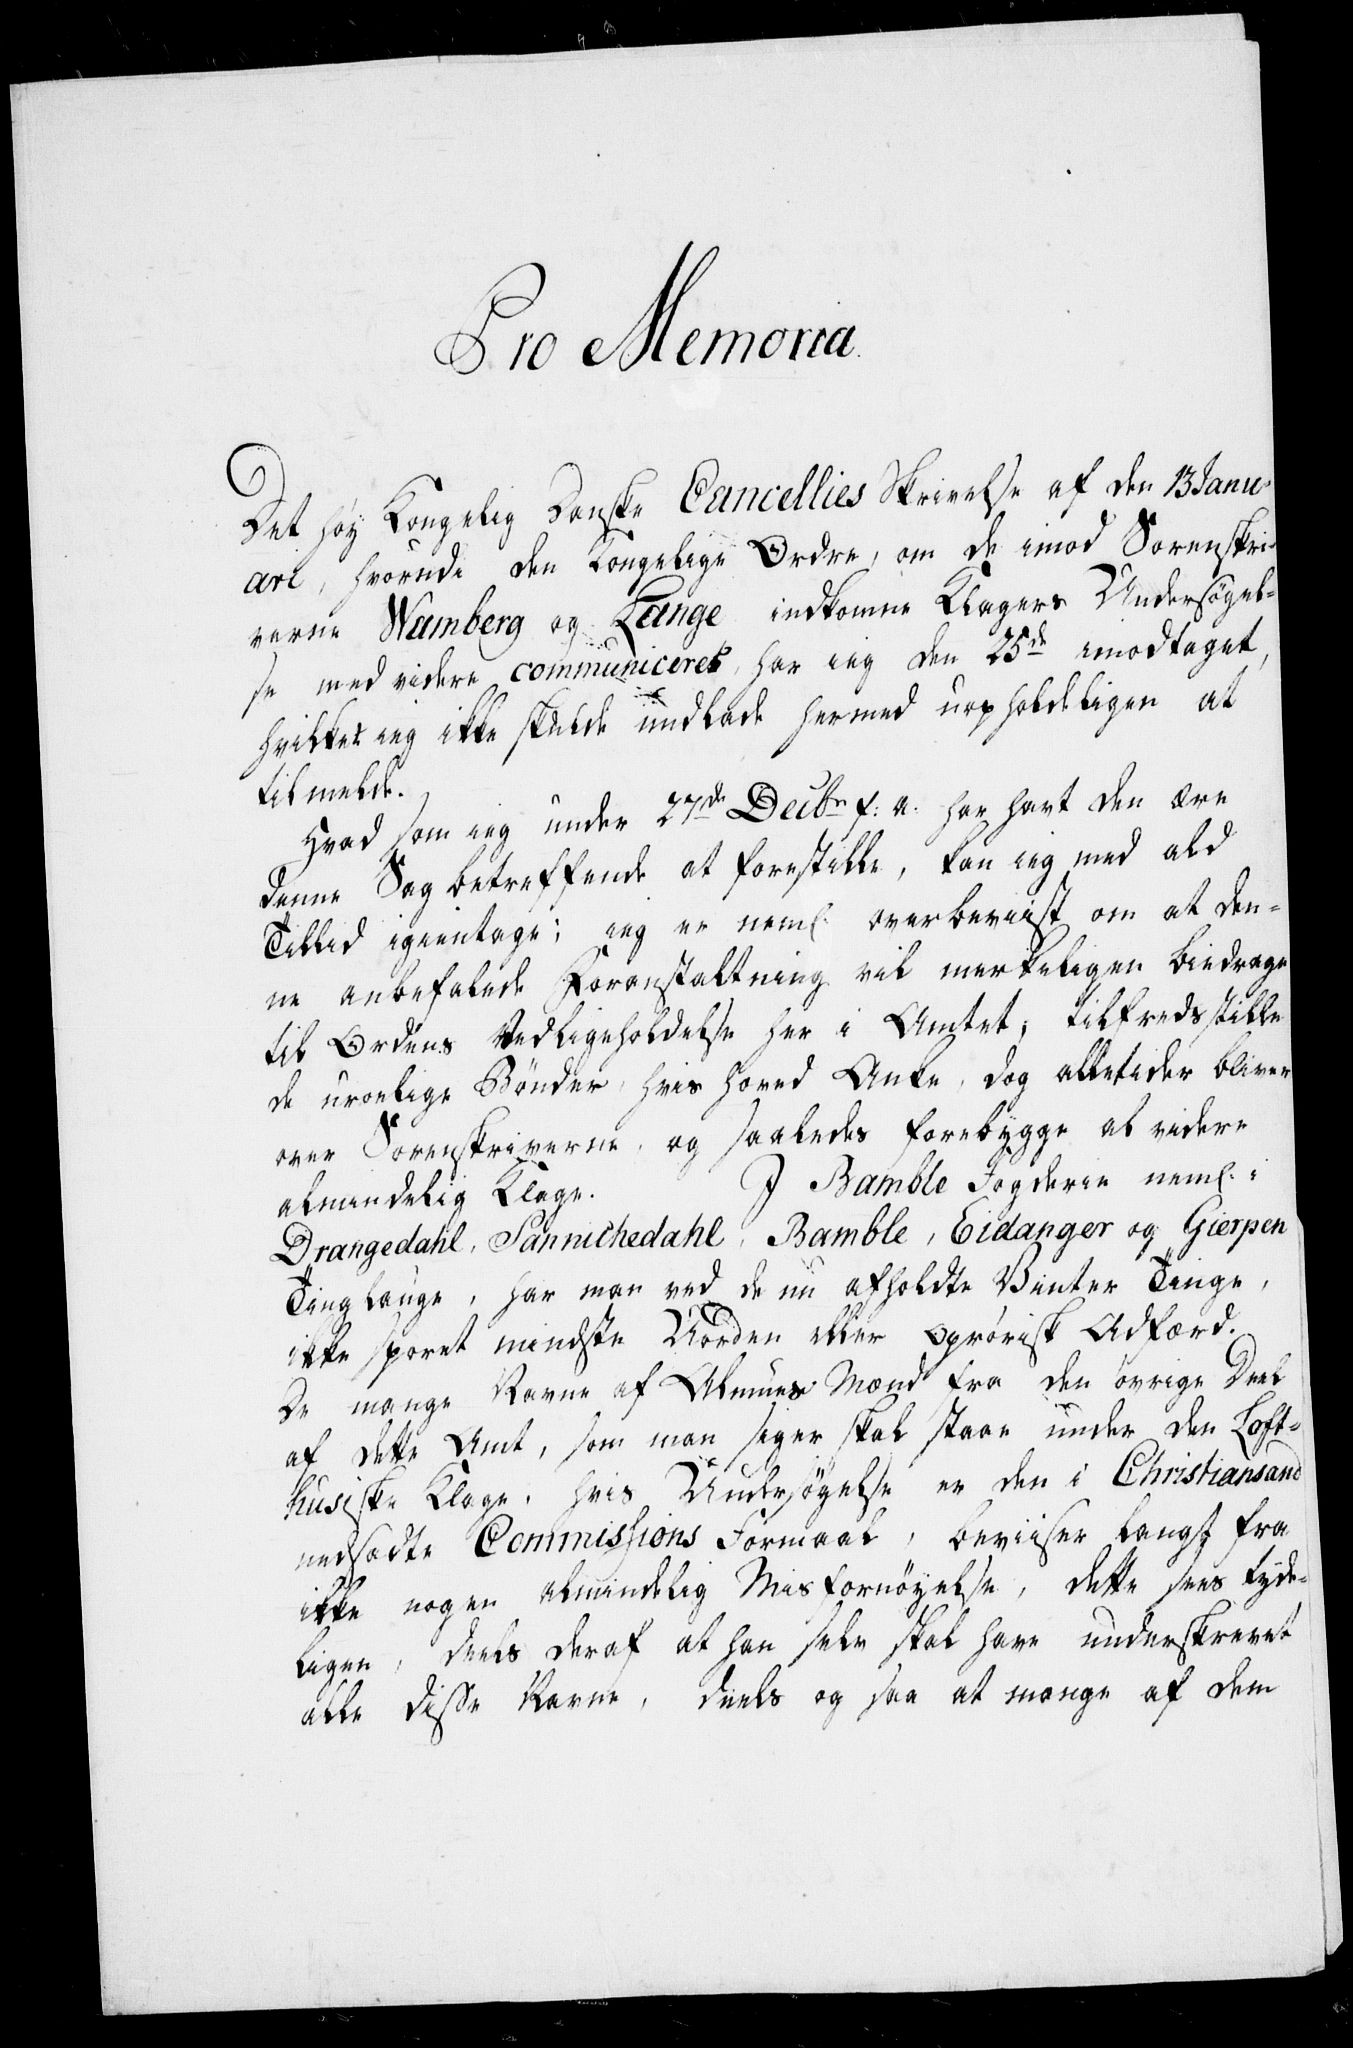 Pro Memoria.
Det høy Kongelig Danske Cancellies Skrivelse af den 13 Janu-
ari, hvorudi den Kongelige Ordre, om de imod Sorenskri-
verne Wamberg og Lange indkomne Klagers Undersøgel-
se med videre communiceret, har ieg den 25de imodtaget,
hvilket ieg ikke skulde undlade hermed uopholdeligen at
tilmelde.
Hvad som ieg under 27de Decbr f: a. har havt den ære
denne Sag betreffende at forestille, kan ieg med ald
Tillid igientage; ieg er neml. overbeviist om at den-
ne anbefalede Foranstaltning vil merkeligen biedrage
til Ordens Vedligeholdelse her i Amtet; tilfredsstille
de uroelige Bønder, hvis hoved Anke, dog alletider bliver
over Sorenskriverne, og saaledes forebygge al videre
almindelig Klage. I Bamble Fogderie neml. i
Drangedahl, Sannichedahl, Bamble, Eidanger og Gierpen
Tinglauge, har man ved de nu afholdte Vinter Tinge,
ikke sporet mindste Uorden eller oprørisk Adfærd.
De mange Navne af Almues Mænd fra den øvrige Deel
af dette Amt, som man siger skal staae under den Loft-
husiske Klage, hvis Undersøgelse er den i Christiansand
nedsadte Commissions Formaal, beviiser langt fra
ikke nogen almindelig Misfornøyelse, dette sees tyde-
ligen, deels deraf at han selv skal have underskrevet
alle disse Navne, deels og saa at mange af dem